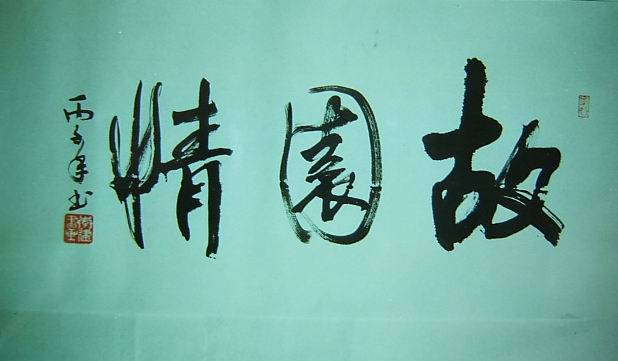 故園情
丙子年书